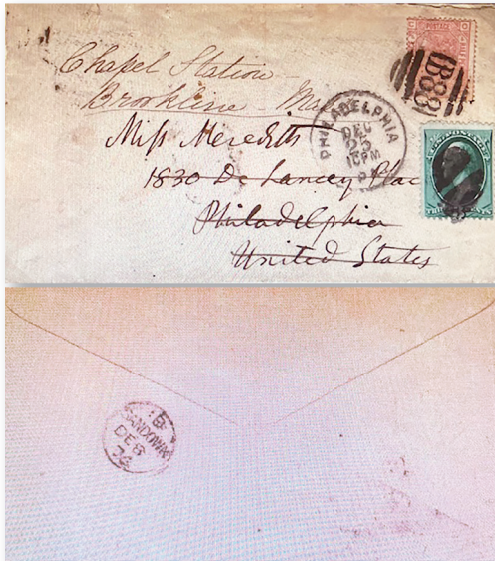 POSTAGE
Chapel Station -
Brookline - Ma
Miſs Meredith
1830 De Lancey Plac
Philadelphia
United States
PHILADELPHIA
DEC
23
10PM
B83
B
SANDOWN
DE 8
76